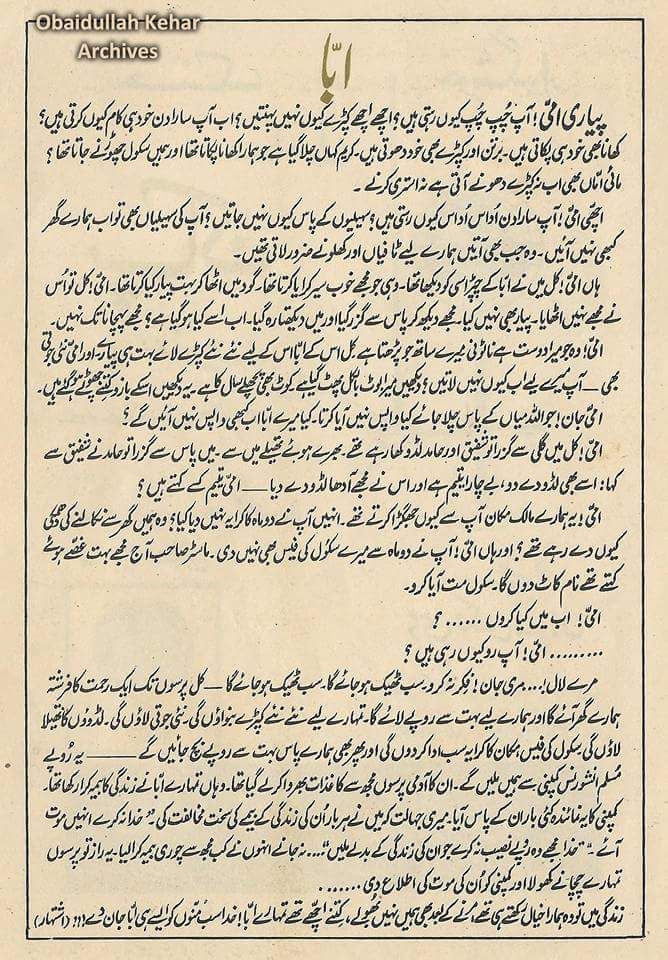 Obaidullah Kehar
Archives
ابّا
پیاری امی! آپ چُپ چُپ کیوں رہتی ہیں؟ اچھے اچھے کپڑے کیوں نہیں پہنتیں؟ اب آپ سارا دن خود ہی کام کیوں کرتی ہیں؟
کھانا بھی خود ہی پکاتی ہیں۔ برتن اور کپڑے بھی خود دھوتی ہیں۔ کریم کہاں چلا گیا ہے جو ہمارا کھانا پکاتا تھا اور ہمیں سکول چھوڑنے جاتا تھا؟
مائی اماّں بھی اب نہ کپڑے دھونے آتی ہے نہ استری کرنے۔
اچھی امیّ! آپ سارا دن اُداس اُداس کیوں رہتی ہیں؟ سہیلیوں کے پاس کیوں نہیں جاتیں؟ آپ کی سہیلیاں بھی تو اب ہمارے گھر
کبھی نہیں آئیں۔ وہ جب بھی آتیں ہمارے لیے ٹافیاں اور کھلونے ضرور لاتی تھیں۔
ہاں امیّ! کل میں نے ابا کے چپڑاسی کو دیکھا تھا۔ وہی جو مجھے خوب سیر کرایا کرتا تھا۔ گود میں اٹھا کر بہت پیار کیا کرتا تھا۔ امیّ! کل تو اُس
نے مجھے نہیں اٹھایا۔ پیار بھی نہیں کیا۔ مجھے دیکھ کر پاس سے گزر گیا اور میں دیکھتا رہ گیا۔ اب اسے کیا ہو گیا ہے؟ مجھے پہچانا تک نہیں۔
امیّ! وہ جو میرا دوست ہے نا ٹونی میرے ساتھ جو پڑھتا ہے کل اس کے ابا اس کے لیے نئے نئے کپڑے لائے بہت ہی پیارے اور امی نئی جوتی
بھی — آپ میرے لیے اب کیوں نہیں لاتیں؟ دیکھیں میرا بوٹ بالکل پھٹ گیا ہے کوٹ بھی پچھلے سال کا ہے۔ یہ دیکھیں اسکے بازو کتنے چھوٹے ہو گئے ہیں۔
امیّ جان! جو اللہ میاں کے پاس چلا جائے کیا واپس نہیں آیا کرتا۔ کیا میرے ابا اب کبھی واپس نہیں آئیں گے؟
امیّ! کل میں گلی سے گزرا تو شفیق اور حامد لڈو کھا رہے تھے۔ بھرے ہوئے تھیلے میں سے۔ میں پاس سے گزرا تو حامد نے شفیق سے
کہا؛ اسے بھی لڈو دے دو، بے چارا یتیم ہے اور اس نے مجھے آدھا لڈو دے دیا — امیّ یتیم کسے کہتے ہیں؟
امیّ! یہ ہمارے مالک مکان آپ سے کیوں جھگڑا کرتے تھے۔ انہیں آپ نے دو ماہ کا کرایہ نہیں دیا کیا؟ وہ ہمیں گھر سے نکالنے کی دھمکی
کیوں دے رہے تھے؟ اور ہاں امیّ! آپ نے دو ماہ سے میرے سکول کی فیس بھی نہیں دی۔ ماسٹر صاحب آج مجھے بہت غصّے ہوئے
کہتے تھے نام کاٹ دوں گا۔ سکول مت آیا کرو۔
امیّ! اب میں کیا کروں ...... ؟
......... امیّ! آپ رو کیوں رہی ہیں؟
مرے لال! .... مری جان! فکر نہ کرو۔ سب ٹھیک ہو جائے گا۔ سب ٹھیک ہو جائے گا — کل پرسوں تک ایک رحمت کا فرشتہ
ہمارے گھر آئے گا اور ہمارے لیے بہت سے روپے لائے گا۔ تمہارے لیے نئے نئے کپڑے بنواؤں گی۔ نئی جوتی لاؤں گی۔ لڈوؤں کا تھیلا
لاؤں گی۔ سکول کی فیس، مکان کا کرایہ سب ادا کر دوں گی اور پھر بھی ہمارے پاس بہت سے روپے بچ جائیں گے — یہ رُوپے
مُسلم انشورنس کمپنی سے ہمیں ملیں گے۔ ان کا آدمی پرسوں مجھ سے کاغذات بھروا کر لے گیا تھا۔ وہاں تمہارے ابا نے زندگی کا بیمہ کرا رکھا تھا۔
کمپنی کا یہ نمائندہ کئی بار ان کے پاس آیا۔ میری جہالت کہ میں نے ہر بار اُن کی زندگی کے بیمے کی سخت مخالفت کی۔ "خدا نہ کرے انہیں موت
آئے۔" "خدا مجھے وہ روپے نصیب نہ کرے جو ان کی زندگی کے بدلے ملیں" .... نہ جانے انہوں نے کب مجھ سے چوری بیمہ کرا لیا۔ یہ راز تو پرسوں
تمہارے چچا نے کھولا اور کمپنی کو اُن کی موت کی اطلاع دی ......
زندگی میں تو وہ ہمارا خیال رکھتے ہی تھے، مرنے کے بعد بھی ہمیں نہیں بھُولے، کتنے اچھّے تھے تمہارے ابا! خدا سب مُنّوں کو ایسے ہی ابا جان دے!!! (اشتہار)